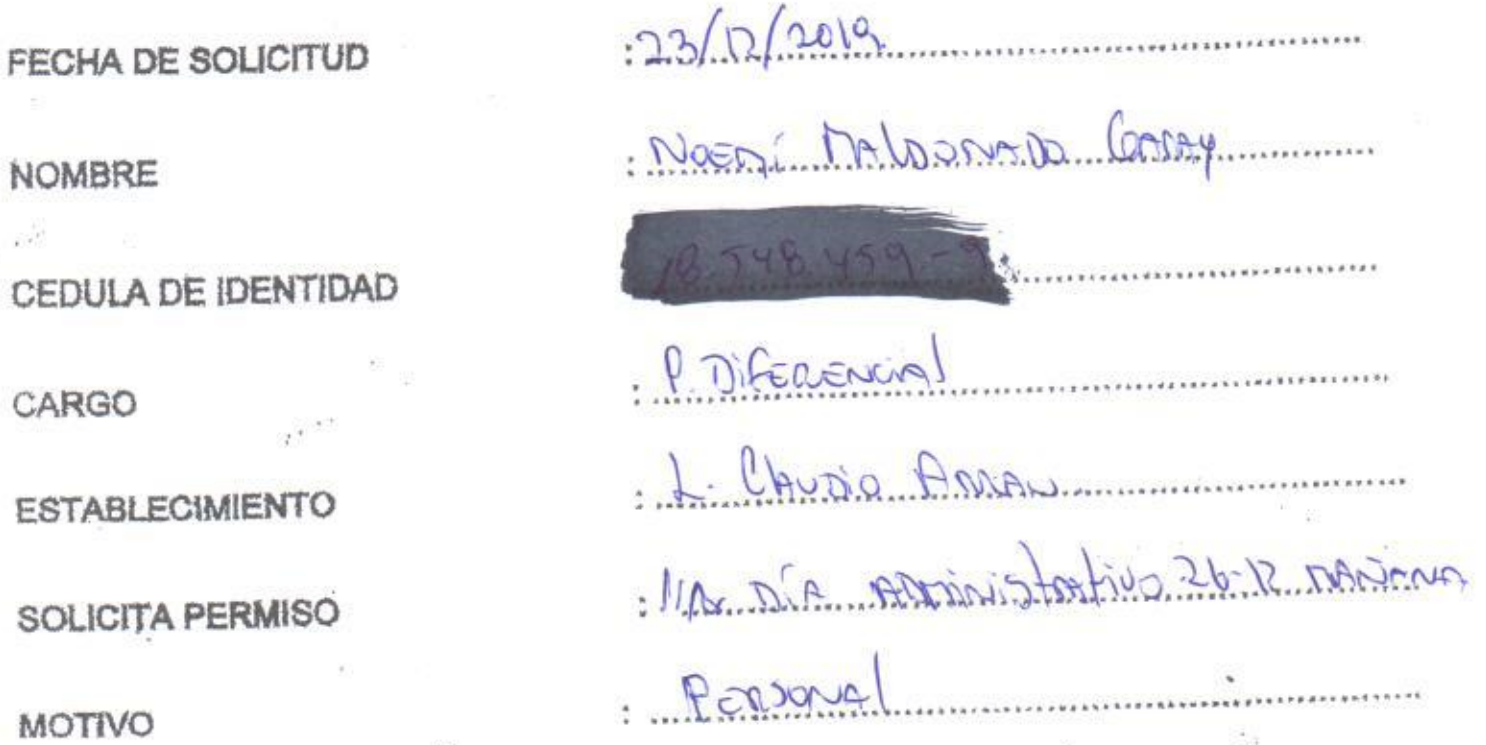 FECHA DE SOLICITUD : 23/12/2019
NOMBRE : NOEMÍ MALDONADO GARAY
CEDULA DE IDENTIDAD
CARGO : P. DIFERENCIAL
ESTABLECIMIENTO : L. CLAUDIO ARRAU
SOLICITA PERMISO : DÍA ADMINISTRATIVO 26-12 MAÑANA
MOTIVO : PERSONAL